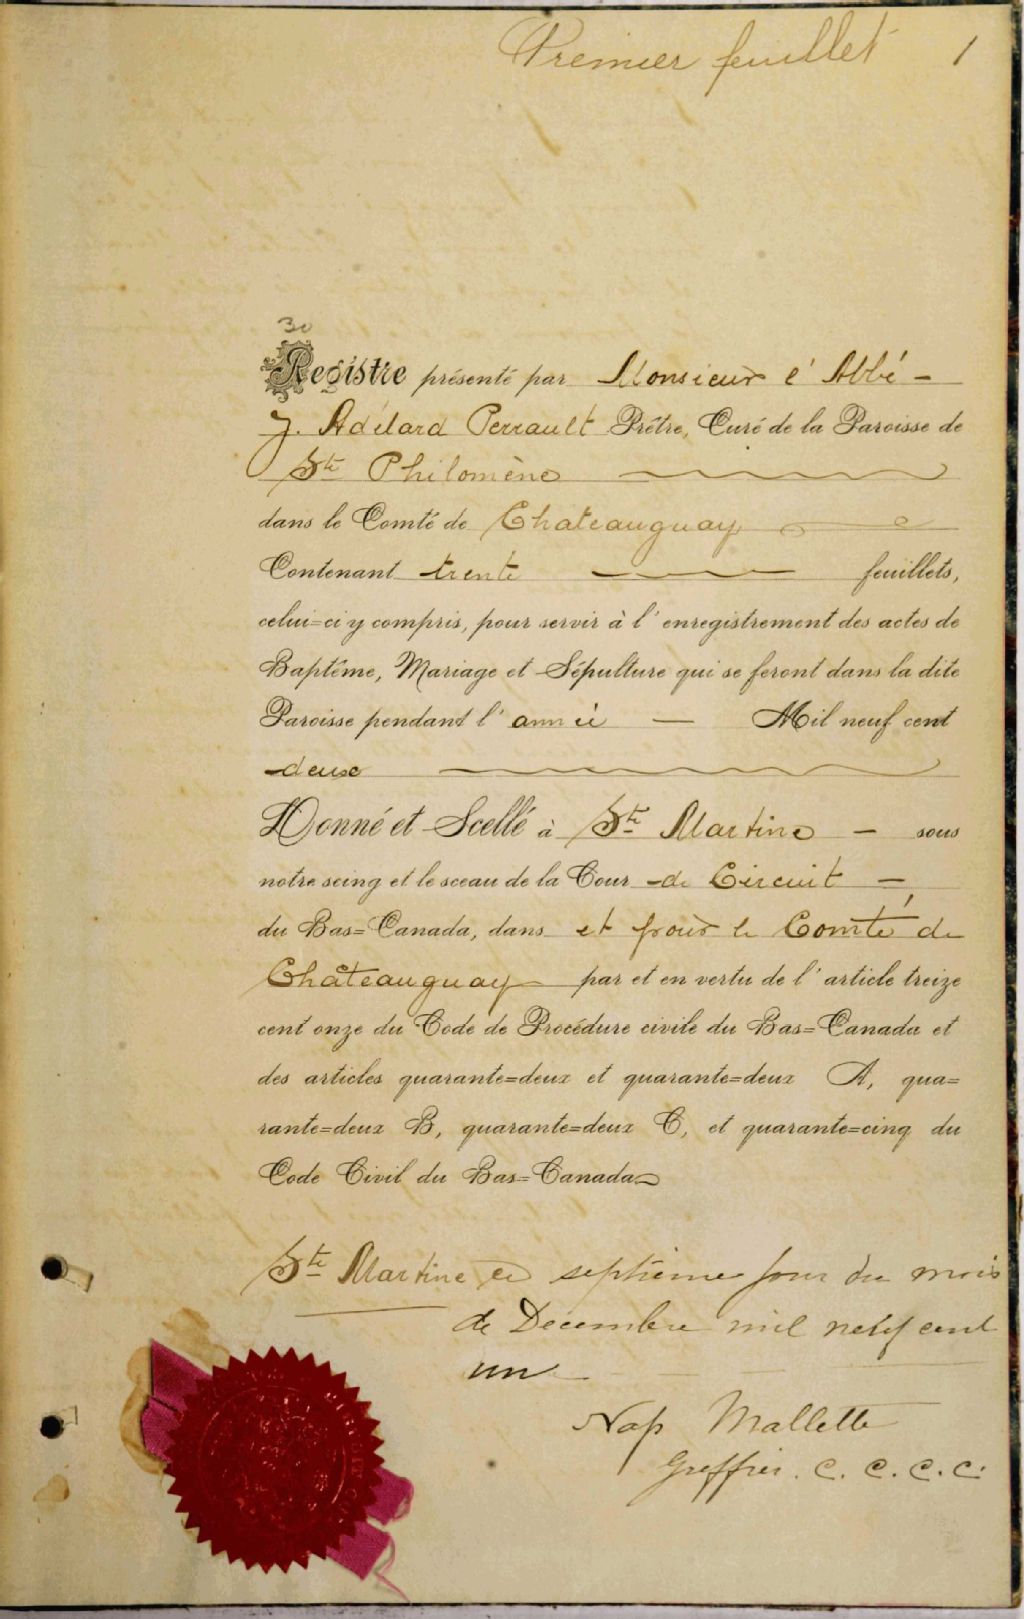 Premier feuillet 1
30
Registre présenté par Monsieur l'Abbé -
J. Adélard Perrault Prêtre, Curé de la Paroisse de
Ste Philomène
dans le Comté de Chateauguay
Contenant trente feuillets,
celui=ci y compris, pour servir à l'enregistrement des actes de
Baptême, Mariage et Sépulture qui se feront dans la dite
Paroisse pendant l'année — Mil neuf cent
deux
Donné et Scellé à Ste Martine - sous
notre seing et le sceau de la Cour de Circuit -
du Bas=Canada, dans et pour le Comté de
Châteauguay par et en vertu de l'article treize
cent onze du Code de Procédure civile du Bas=Canada et
des articles quarante=deux et quarante=deux A, qua=
rante=deux B, quarante=deux C, et quarante=cinq du
Code Civil du Bas=Canada
Ste Martine ce septième jour du mois
de Décembre mil neuf cent
un
Nap Mallette
Greffier. C. C. C. C.